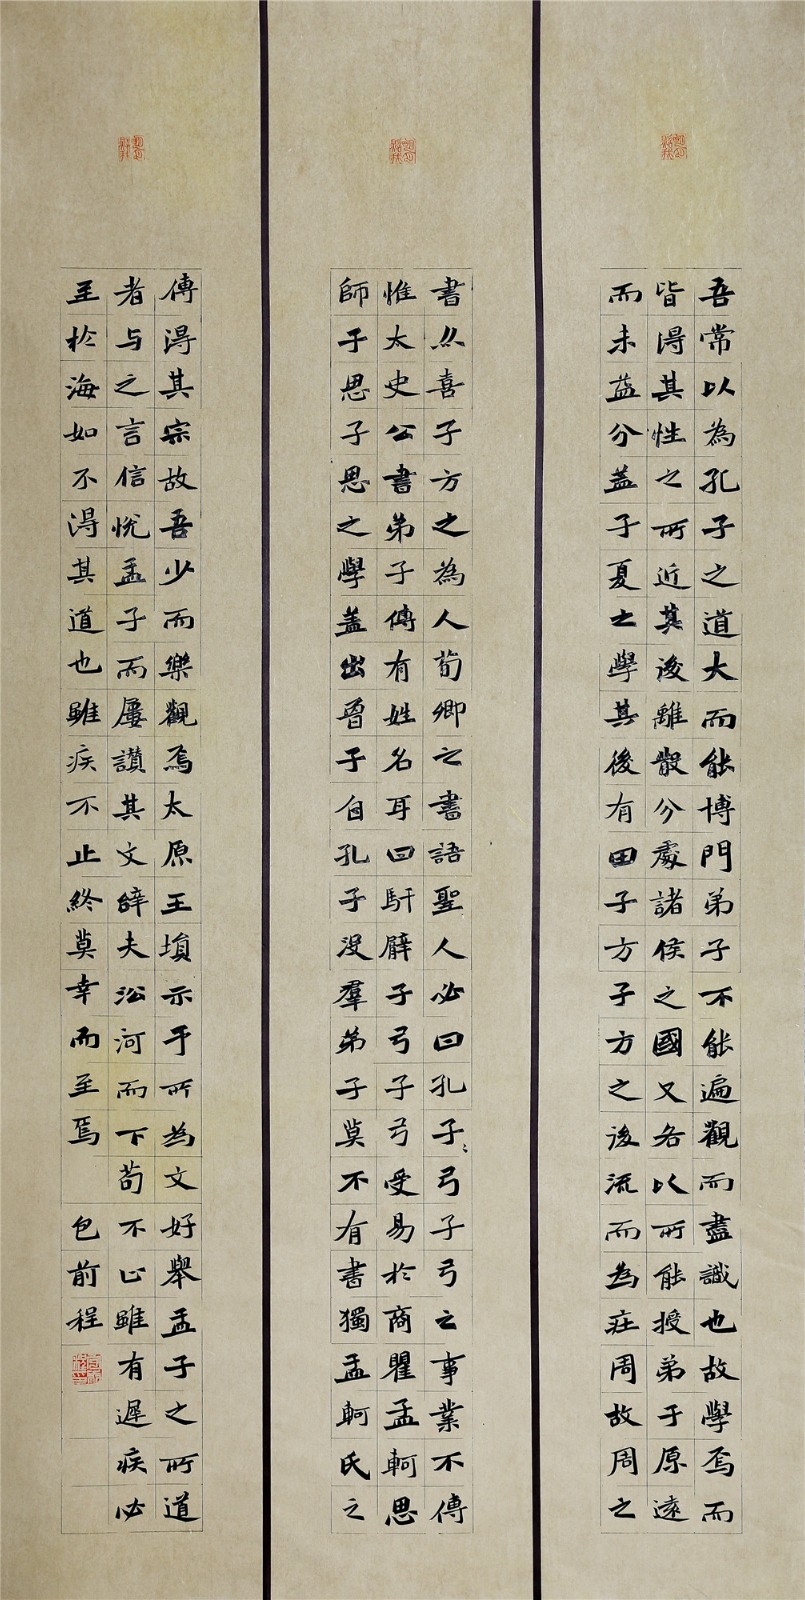 吾常以為孔子之道大而能博門弟子不能遍觀而盡識也故學焉而
皆得其性之所近其後離散分處諸侯之國又各以所能授弟子原遠
而末益分蓋子夏之學其後有田子方子方之後流而為莊周故周之
書灬喜子方之為人荀卿之書語聖人必曰孔子弓子弓之事業不傳
惟太史公書弟子傳有姓名耳曰馯臂子弓子弓受易於商瞿孟軻思
師子思子思之學蓋出曾子自孔子沒羣弟子莫不有書獨孟軻氏之
傳得其宗故吾少而樂觀焉太原王塤示予所為文好舉孟子之所道
者与之言信悅孟子而屢讚其文辭夫沿河而下苟不止雖有遲疾必
至於海如不得其道也雖疾不止終莫幸而至焉 包前程